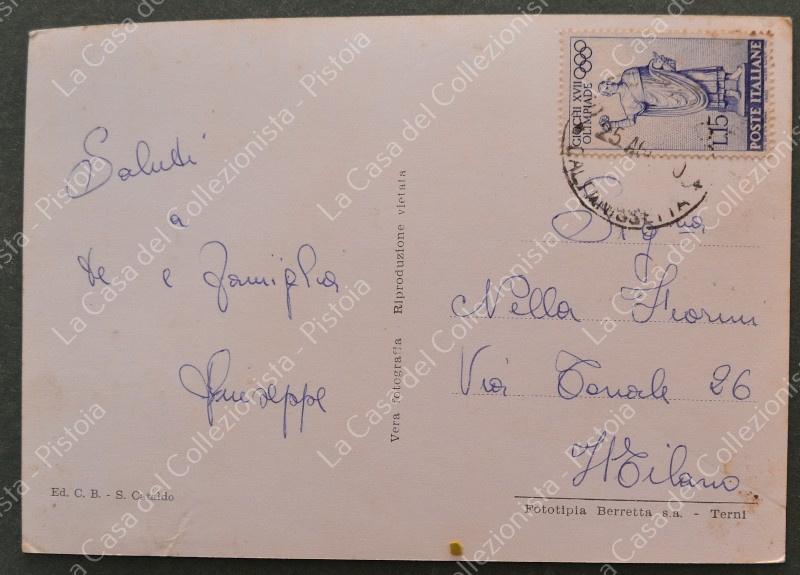 Saluti
a
te e famiglia
Giuseppe
Vera fotografia Riproduzione vietata
Ed. C. B. - S. Cataldo
GIOCHI XVII
OLIMPIADE
L.15
POSTE ITALIANE
25
CALTANISSETTA
Sig.na
Nella Fiorini
Via Tonale 26
Milano
Fototipia Berretta s.a. - Terni
La Casa del Collezionista - Pistoia